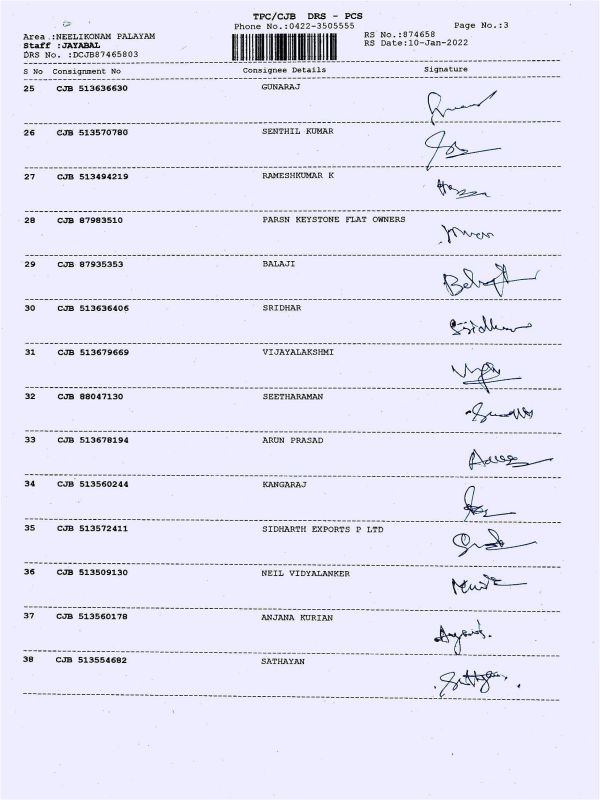 TPC/CJB DRS - PCS
Phone No.:0422-3505555 Page No.:3
Area :NEELIKONAM PALAYAM RS No.:874658
Staff :JAYABAL RS Date:10-Jan-2022
DRS No. :DCJB87465803
S No Consignment No Consignee Details Signature
25 CJB 513636630 GUNARAJ
26 CJB 513570780 SENTHIL KUMAR
27 CJB 513494219 RAMESHKUMAR K
28 CJB 87983510 PARSN KEYSTONE FLAT OWNERS
29 CJB 87935353 BALAJI
30 CJB 513636406 SRIDHAR
31 CJB 513679669 VIJAYALAKSHMI
32 CJB 88047130 SEETHARAMAN
33 CJB 513678194 ARUN PRASAD
34 CJB 513560244 KANGARAJ
35 CJB 513572411 SIDHARTH EXPORTS P LTD
36 CJB 513509130 NEIL VIDYALANKER
37 CJB 513560178 ANJANA KURIAN
38 CJB 513554682 SATHAYAN